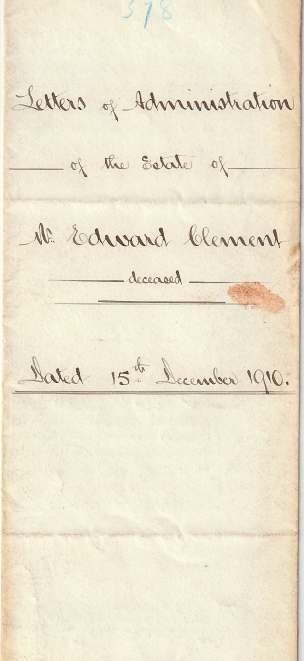 378
Letters of Administration
of the Estate of
Mr. Edward Clement
deceased
Dated 15th December 1910.